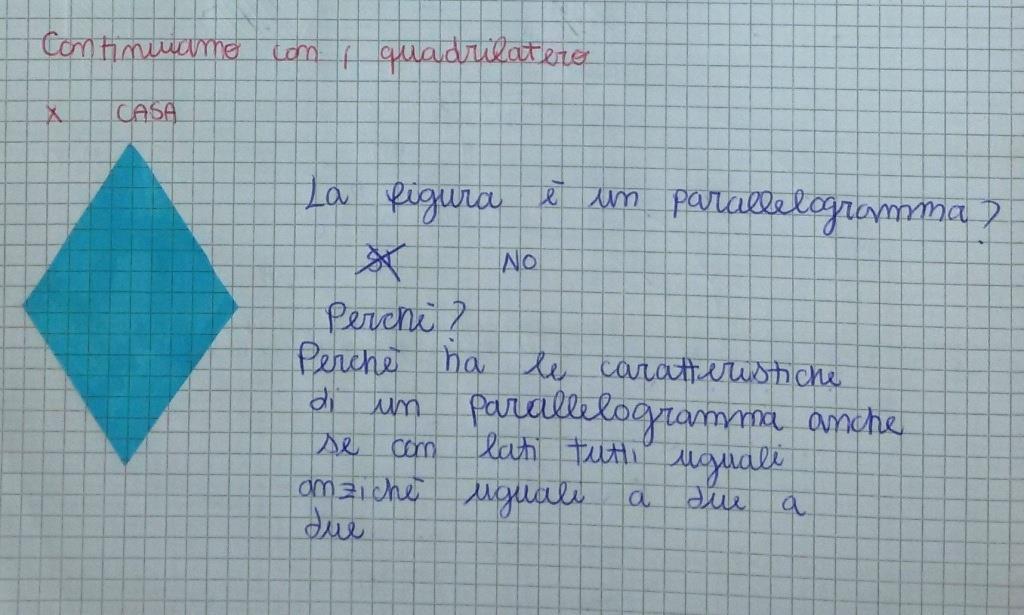 Continuiamo con i quadrilateri
X CASA
La figura è un parallelogramma?
SI NO
Perché?
Perché ha le caratteristiche
di un parallelogramma anche
se con lati tutti uguali
anziché uguali a due a
due